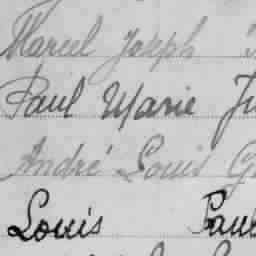 Marcel Joseph
Paul Marie
André Louis
Louis Paul